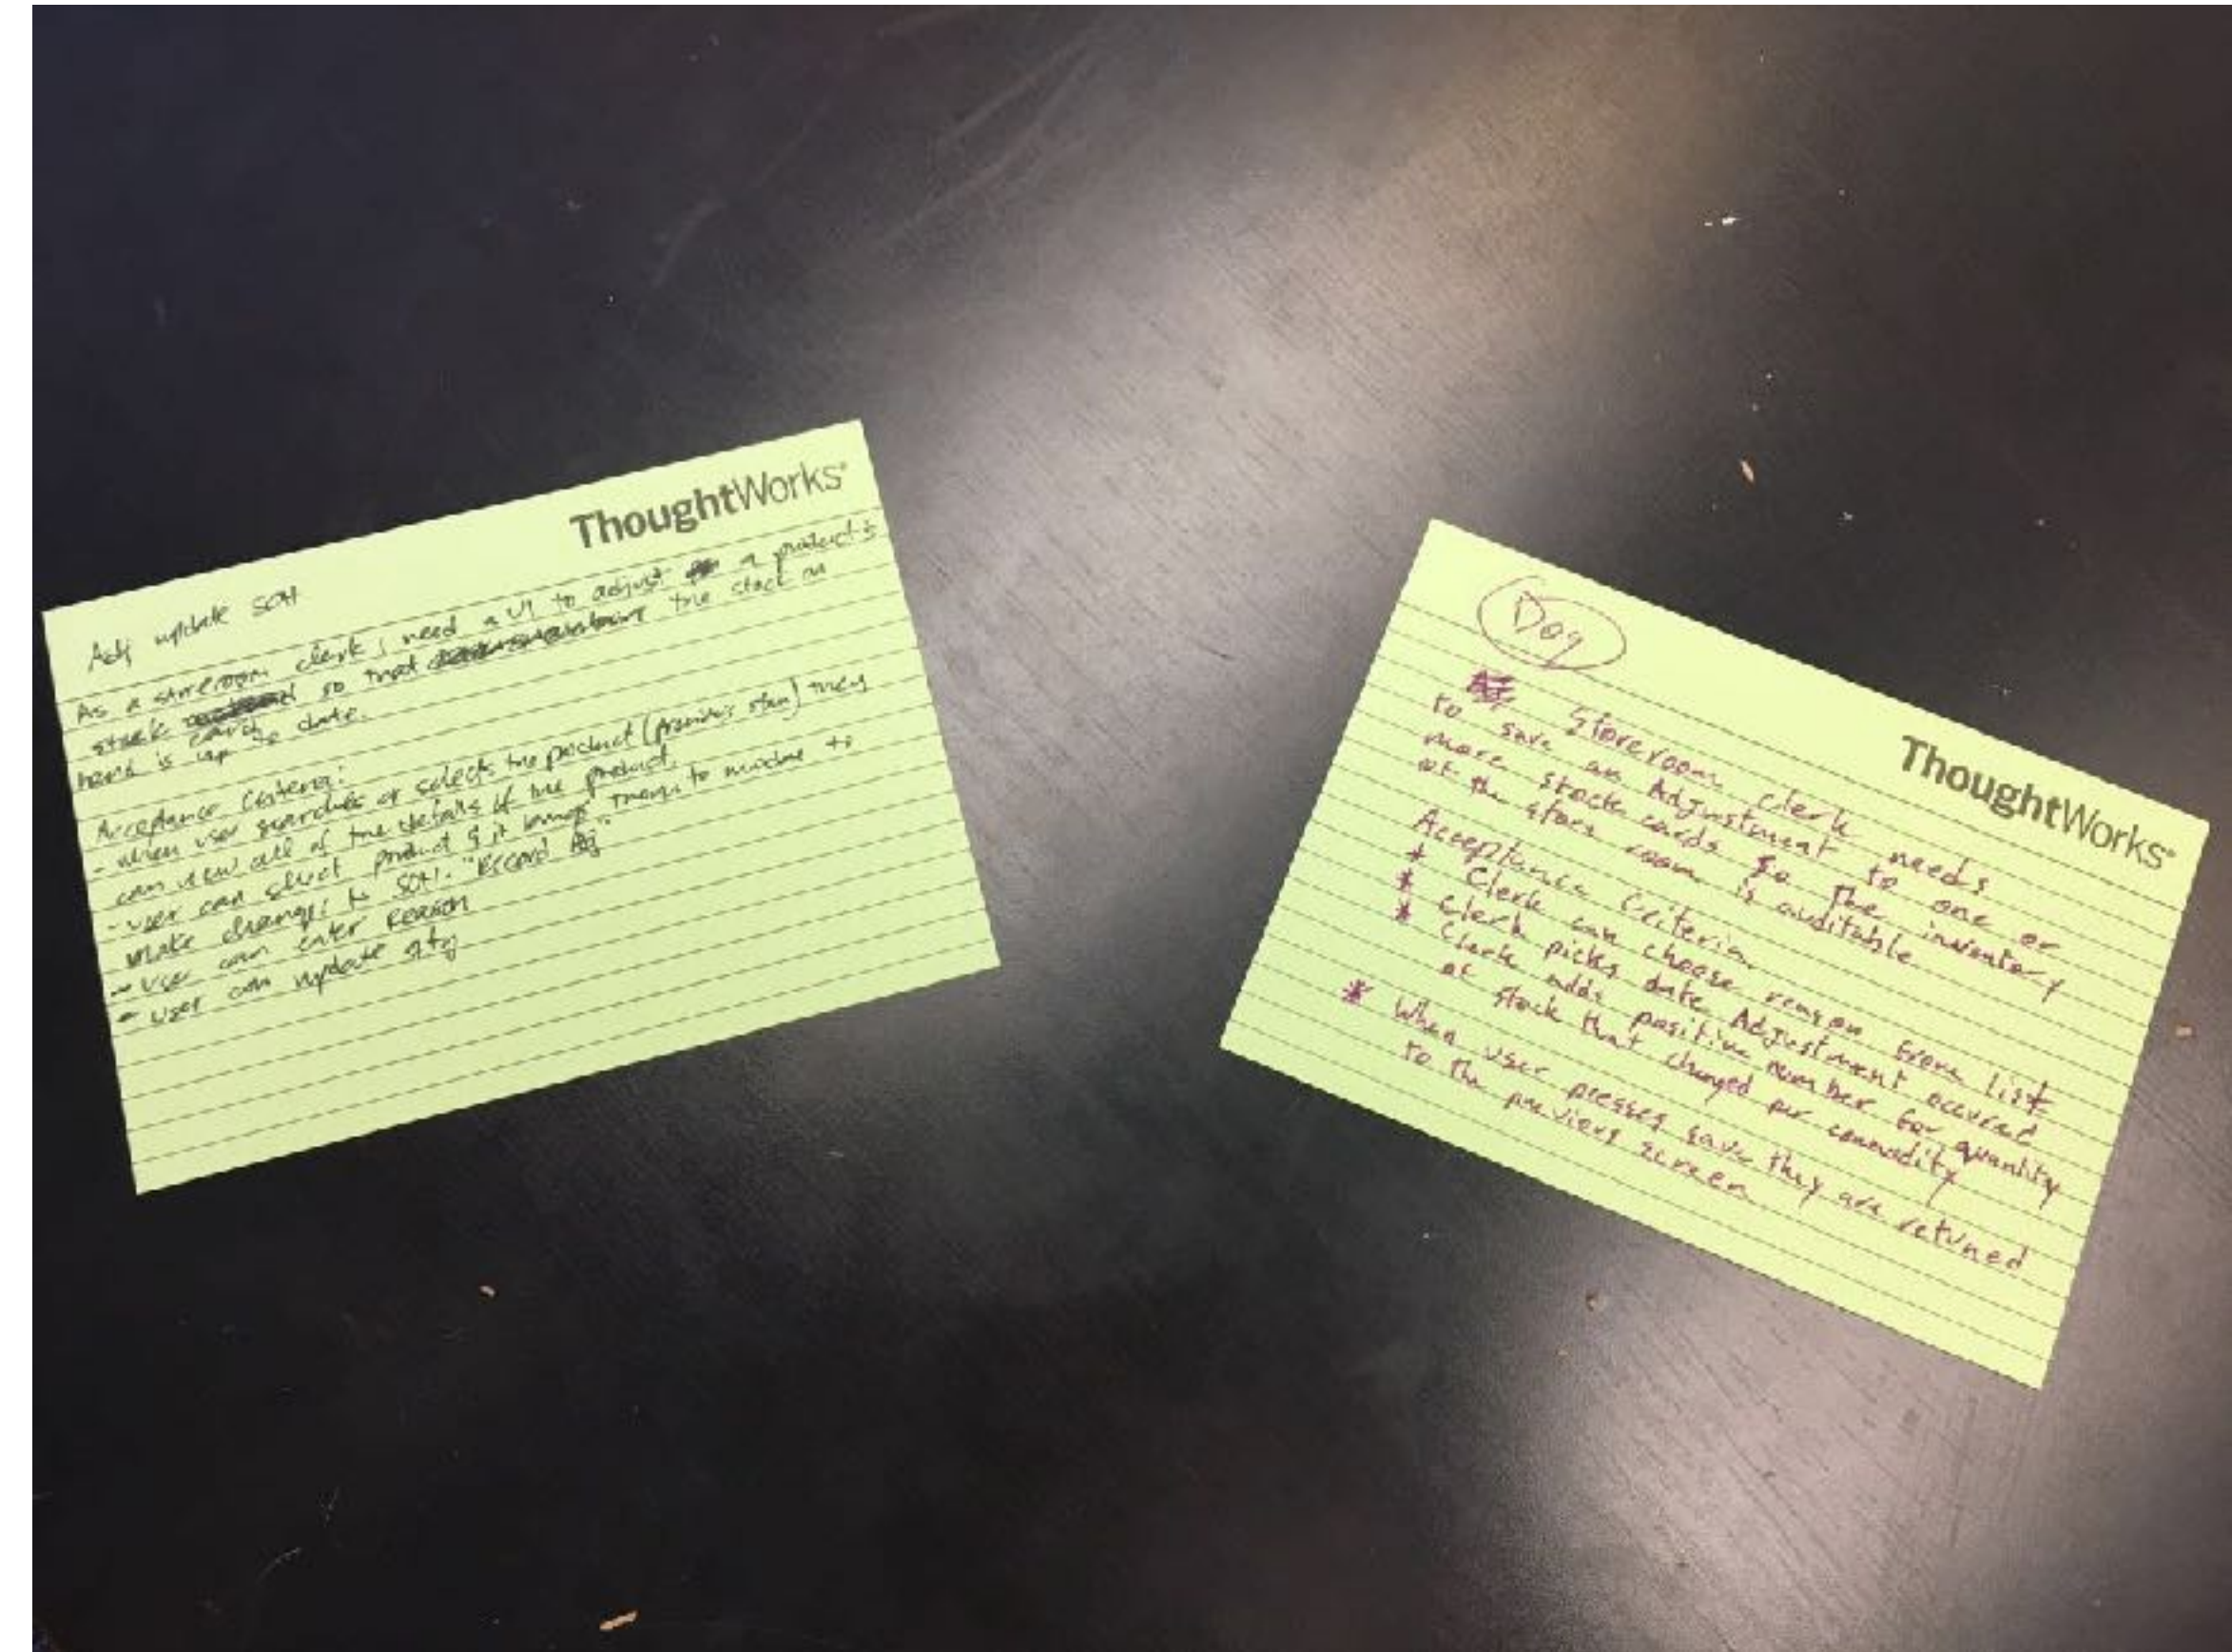 ThoughtWorks®
Adj update SOH
As a storeroom clerk, need a UI to adjust a product's
stock card so that the stock on
hand is up to date.
Acceptance Criteria:
- when user searches or selects the product (previous) they
can view all of the details of the product.
- user can select product & it to
make changes to SOH. "Record Adj"
- user can enter reason
- user can update qty
Dog
ThoughtWorks®
Storeroom clerk needs
to save an Adjustment to one or
more stock cards so the inventory
at the store room is auditable
Acceptance Criteria
* Clerk can choose reason from list
* Clerk picks date Adjustment occured
* Clerk adds positive number for quantity
of stock that changed per commodity
* When user presses save they are retuned
to the previous screen